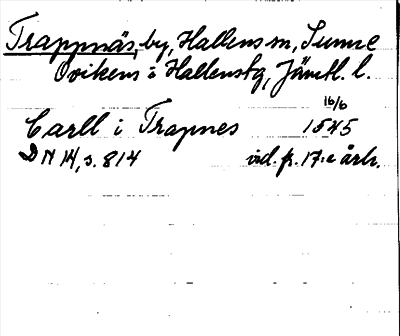 Trappnäs, by, Hallens sn, Sunne
Ovikens o Hallens tg, Jämtl. l.
16/6
Carll i Trapnes 1545
DN 14, s. 814 vid. fr. 17:e årh.